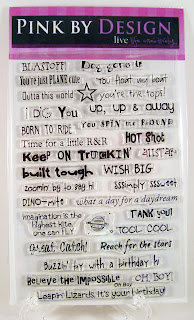 PINK BY DESIGN
live
BLASTOFF! Dog gone it
You're just PLANE cute You float my boat
Outta this world you're the tops!
I DIG You up, up & away
BORN TO RIDE You SPIN me ROUND
Time for a little R&R HOT Shot
KEEP ON TRUCKIN' allstar
built tough WISH BIG
zoomin' by to say hi ssssimply ssssweet
DINO-mite what a day for a daydream
imagination is the highest kite one can fly TANK you!
TOOL COOL
Great Catch! Reach for the stars
Buzzin' by with a birthday hi
Believe the impossible Oh Boy OH BOY!
Leapin' Lizards, it's your birthday!